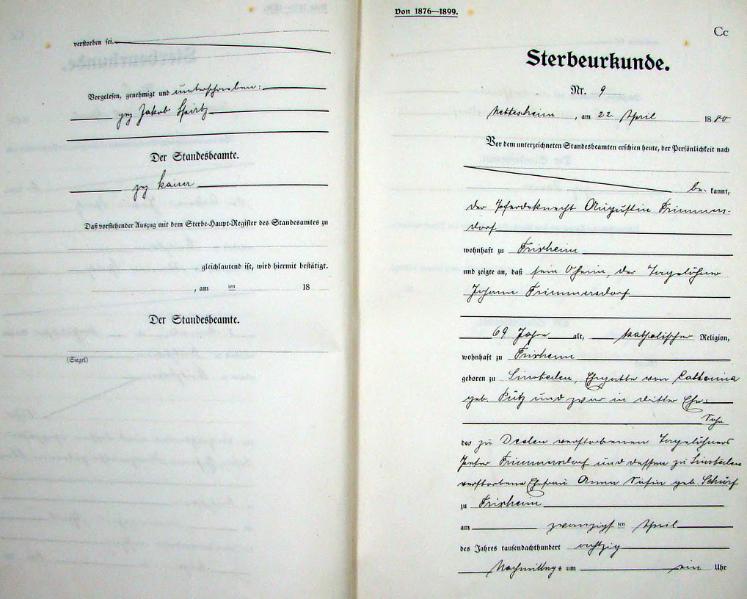 verstorben sei.
Vorgelesen, genehmigt und unterschrieben:
gez Jakob
Der Standesbeamte.
gez
Daß vorstehender Auszug mit dem Sterbe-Haupt-Register des Standesamtes zu
gleichlautend ist, wird hiermit bestätigt.
, am ten 18
Der Standesbeamte.
(Siegel)
Von 1876—1899.
Cc
Sterbeurkunde.
Nr. 9
Nettesheim, am 22 April 1880
Vor dem unterzeichneten Standesbeamten erschien heute, der Persönlichkeit nach
be kannt,
der Pferdeknecht Augustin Frimmers-
dorf
wohnhaft zu Frixheim
und zeigte an, daß sein Oheim, der Tagelöhner
Johann Frimmersdorf
69 Jahre alt, katholischer Religion,
wohnhaft zu Frixheim
geboren zu Sinsteden, Ehegatte von Catharina
geb. Pütz und zwar in dritter Ehe.
Sohn
des zu verstorbenen Tagelöhners
Peter Frimmersdorf und dessen zu Sinsteden
verstorbene Ehefrau Anna geb.
zu Frixheim
am zwanzigsten April
des Jahres tausendachthundert achtzig
Nachmittags um ein Uhr